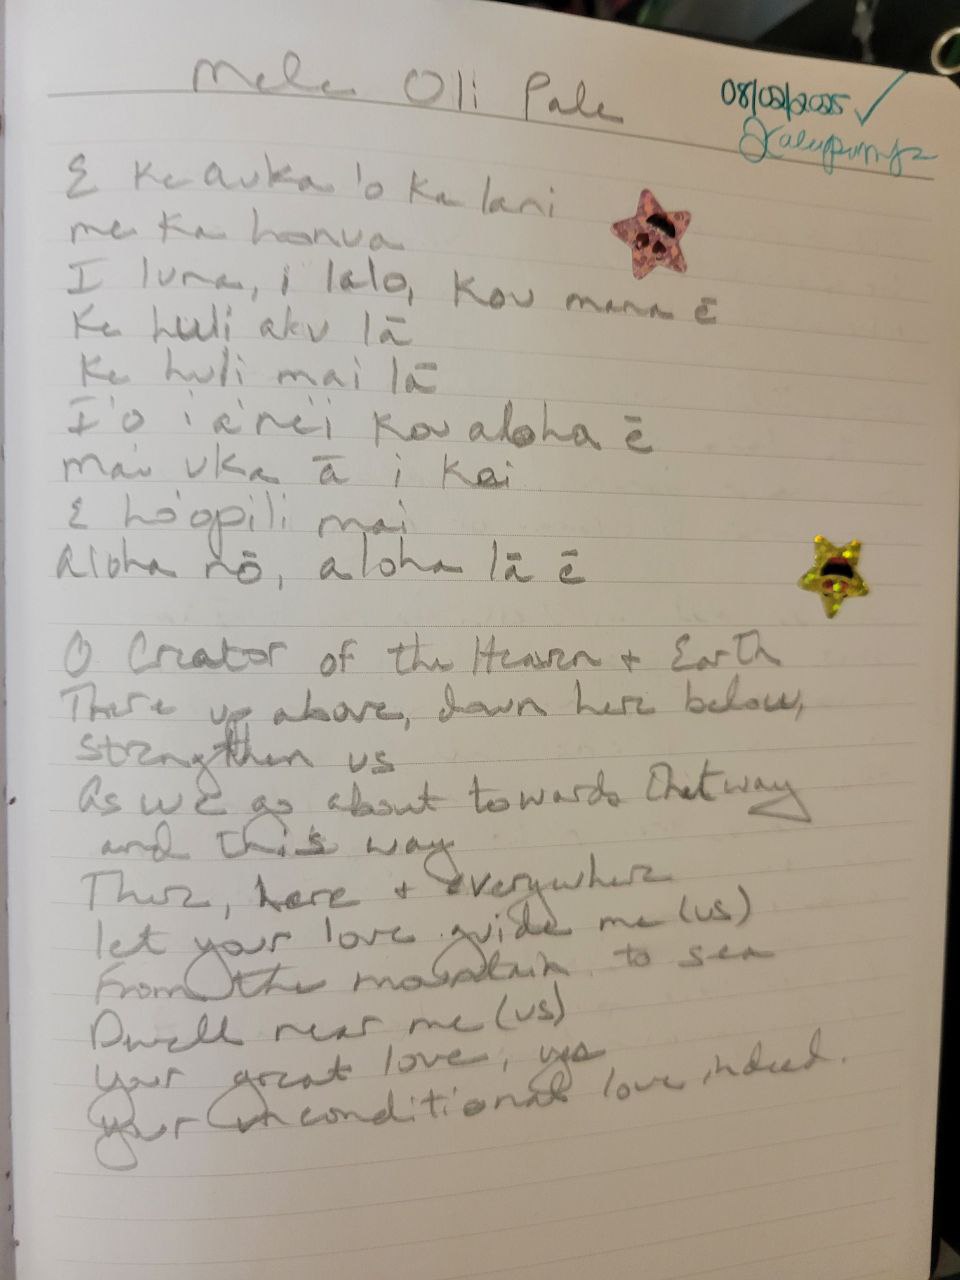 Mele Oli Pale
08/02/2025 ✓
E Ke Auka 'o Ka lani
me Ka honua
I luna, i lalo, Kou mana ē
Ke huli aku lā
Ke huli mai lā
I'o i a'ne'i Kou aloha ē
mai uka ā i Kai
E ho'opili mai
aloha nō, aloha lā ē
O Creator of the Heaven + Earth
There up above, down here below,
strengthen us
As we go about towards that way
and this way
There, here + everywhere
let your love guide me (us)
From the mountain to sea
Dwell near me (us)
your great love, yes
your unconditional love indeed.